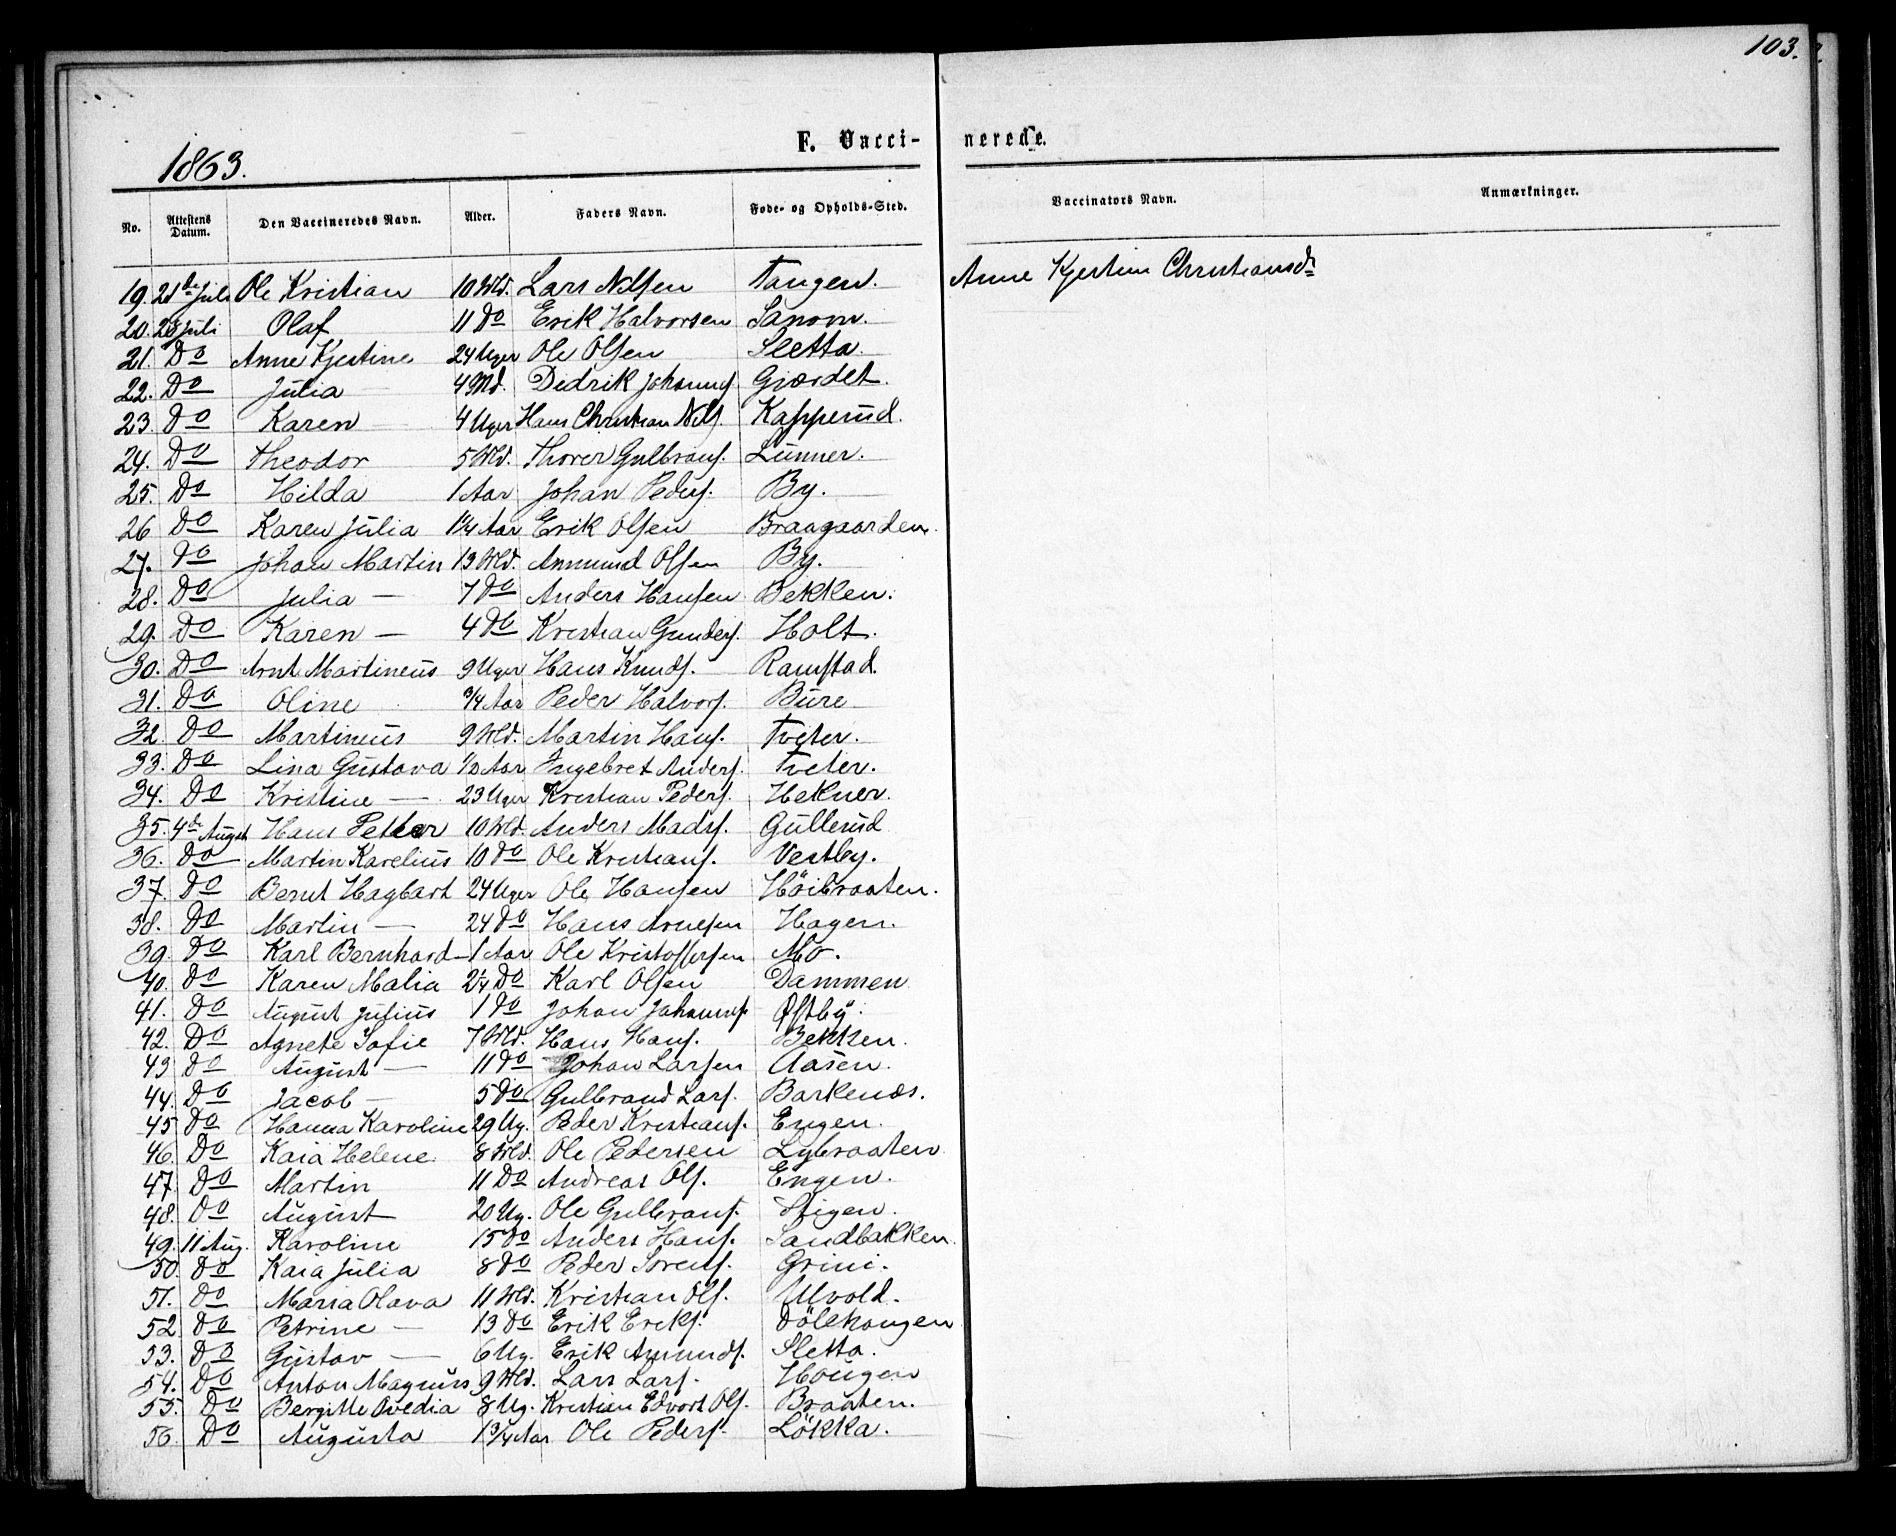 103.
1863.
F. Vacci- nerede.
No. Attestens Datum. Den Vaccineredes Navn. Alder. Faders Navn. Føde- og Opholds-Sted. Vaccinators Navn. Anmærkninger.
19. 21de Juli Ole Kristian 10 Md. Lars Nilsen Tangen. Anne Kjerstine Christiansdr
20. 28 Juli Olaf 11 Do Erik Halvorsen Sanom.
21. Do Anne Kjestine 24 Uger Ole Olsen Sletta.
22. Do Julia 4 Md. Didrik Johanns. Gjærdet.
23. Do Karen 4 Uger Hans Christian Nils. Kapperud.
24. Do Theodor 5 Md. Thorer Gulbrans. Lunner.
25. Do Hilda 1 Aar Johan Peders. By.
26 Do Karen Julia 1 1/4 Aar Erik Olsen Braagaarden.
27. Do Johan Martin 13 Md. Anmund Olsen By.
28. Do Julia 7 Do Anders Hansen Bekken.
29. Do Karen 4 Do Kristian Gunders. Holt.
30. Do Arnt Martineus 9 Uger Hans Knuds. Ramstad.
31. Do Oline 3/4 Aar Peder Halvors. Bure
32. Do Martineus 9 Md. Martin Hans. Tveter.
33. Do Lina Gustava 1/2 Aar Ingebret Anders. Tveter.
34. Do Kristine 23 Uger Kristian Peders. Hekner.
35. 4de Augst Hans Petter 10 Md. Anders Mads. Gullerud
36. Do Martin Karelius 10 Do Ole Kristians. Vestby.
37. Do Bernt Hagbart 24 Uger Ole Hansen Höibraaten.
38. Do Martin 24 Do Hans Arnesen Hagen.
39. Do Karl Bernhard 1 Aar Ole Kristoffersen Mo.
40. Do Karen Malia 2 1/4 Do Karl Olsen Dammen
41. Do August Julius 1 Do Johan Johanns. Østby.
42. Do Agnete Sofie 7 Md. Hans Hans. Bekken.
43 Do August 11 Do Johan Larsen Aasen.
44. Do Jacob 5 Do Gulbrand Lars. Barkenæs.
45 Do Hanna Karoline 29 Ug. Peder Kristians. Engen.
46. Do Kaia Helene 8 Md. Ole Pedersen Lybraaten
47 Do Martin 11 Do Andreas Ols. Engen.
48. Do August 20 Ug. Ole Gulbrans. Stigen.
49. 11 Aug. Karoline 15 Do Anders Hans. Sandbakken.
50 Do Kaia Julia 8 Do Peder Sorens. Grini.
51. Do Maria Olava 11 Md. Kristian Ols. Ulvold.
52 Do Petrine 13 Do Erik Eriks. Dölehougen
53. Do Gustav 6 Ug. Erik Amunds. Sletta.
54. Do Anton Magnus 9 Md. Lars Lars. Hougen
55. Do Bergitte Ovedia 8 Ug. Kristian Edvart Ols. Braaten.
56. Do Augusta 1 3/4 Aar Ole Peders. Lökka.